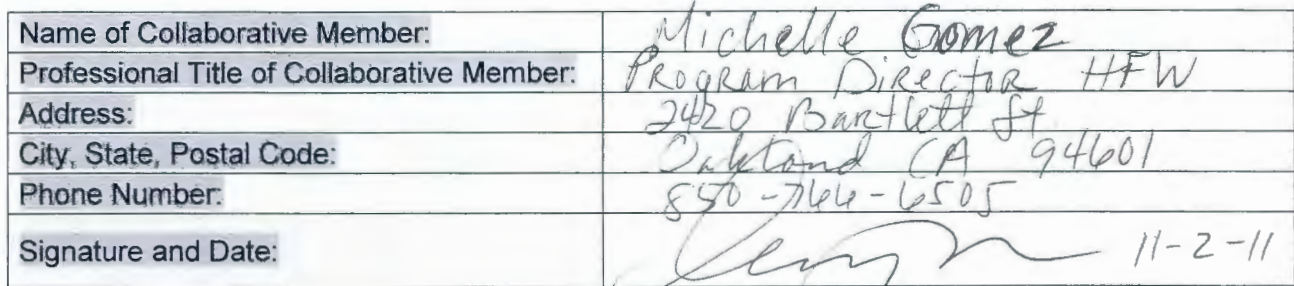 Name of Collaborative Member: Michelle Gomez
Professional Title of Collaborative Member: Program Director HFW
Address: 2420 Bartlett St
City, State, Postal Code: Oakland CA 94601
Phone Number:
Signature and Date: 11-2-11